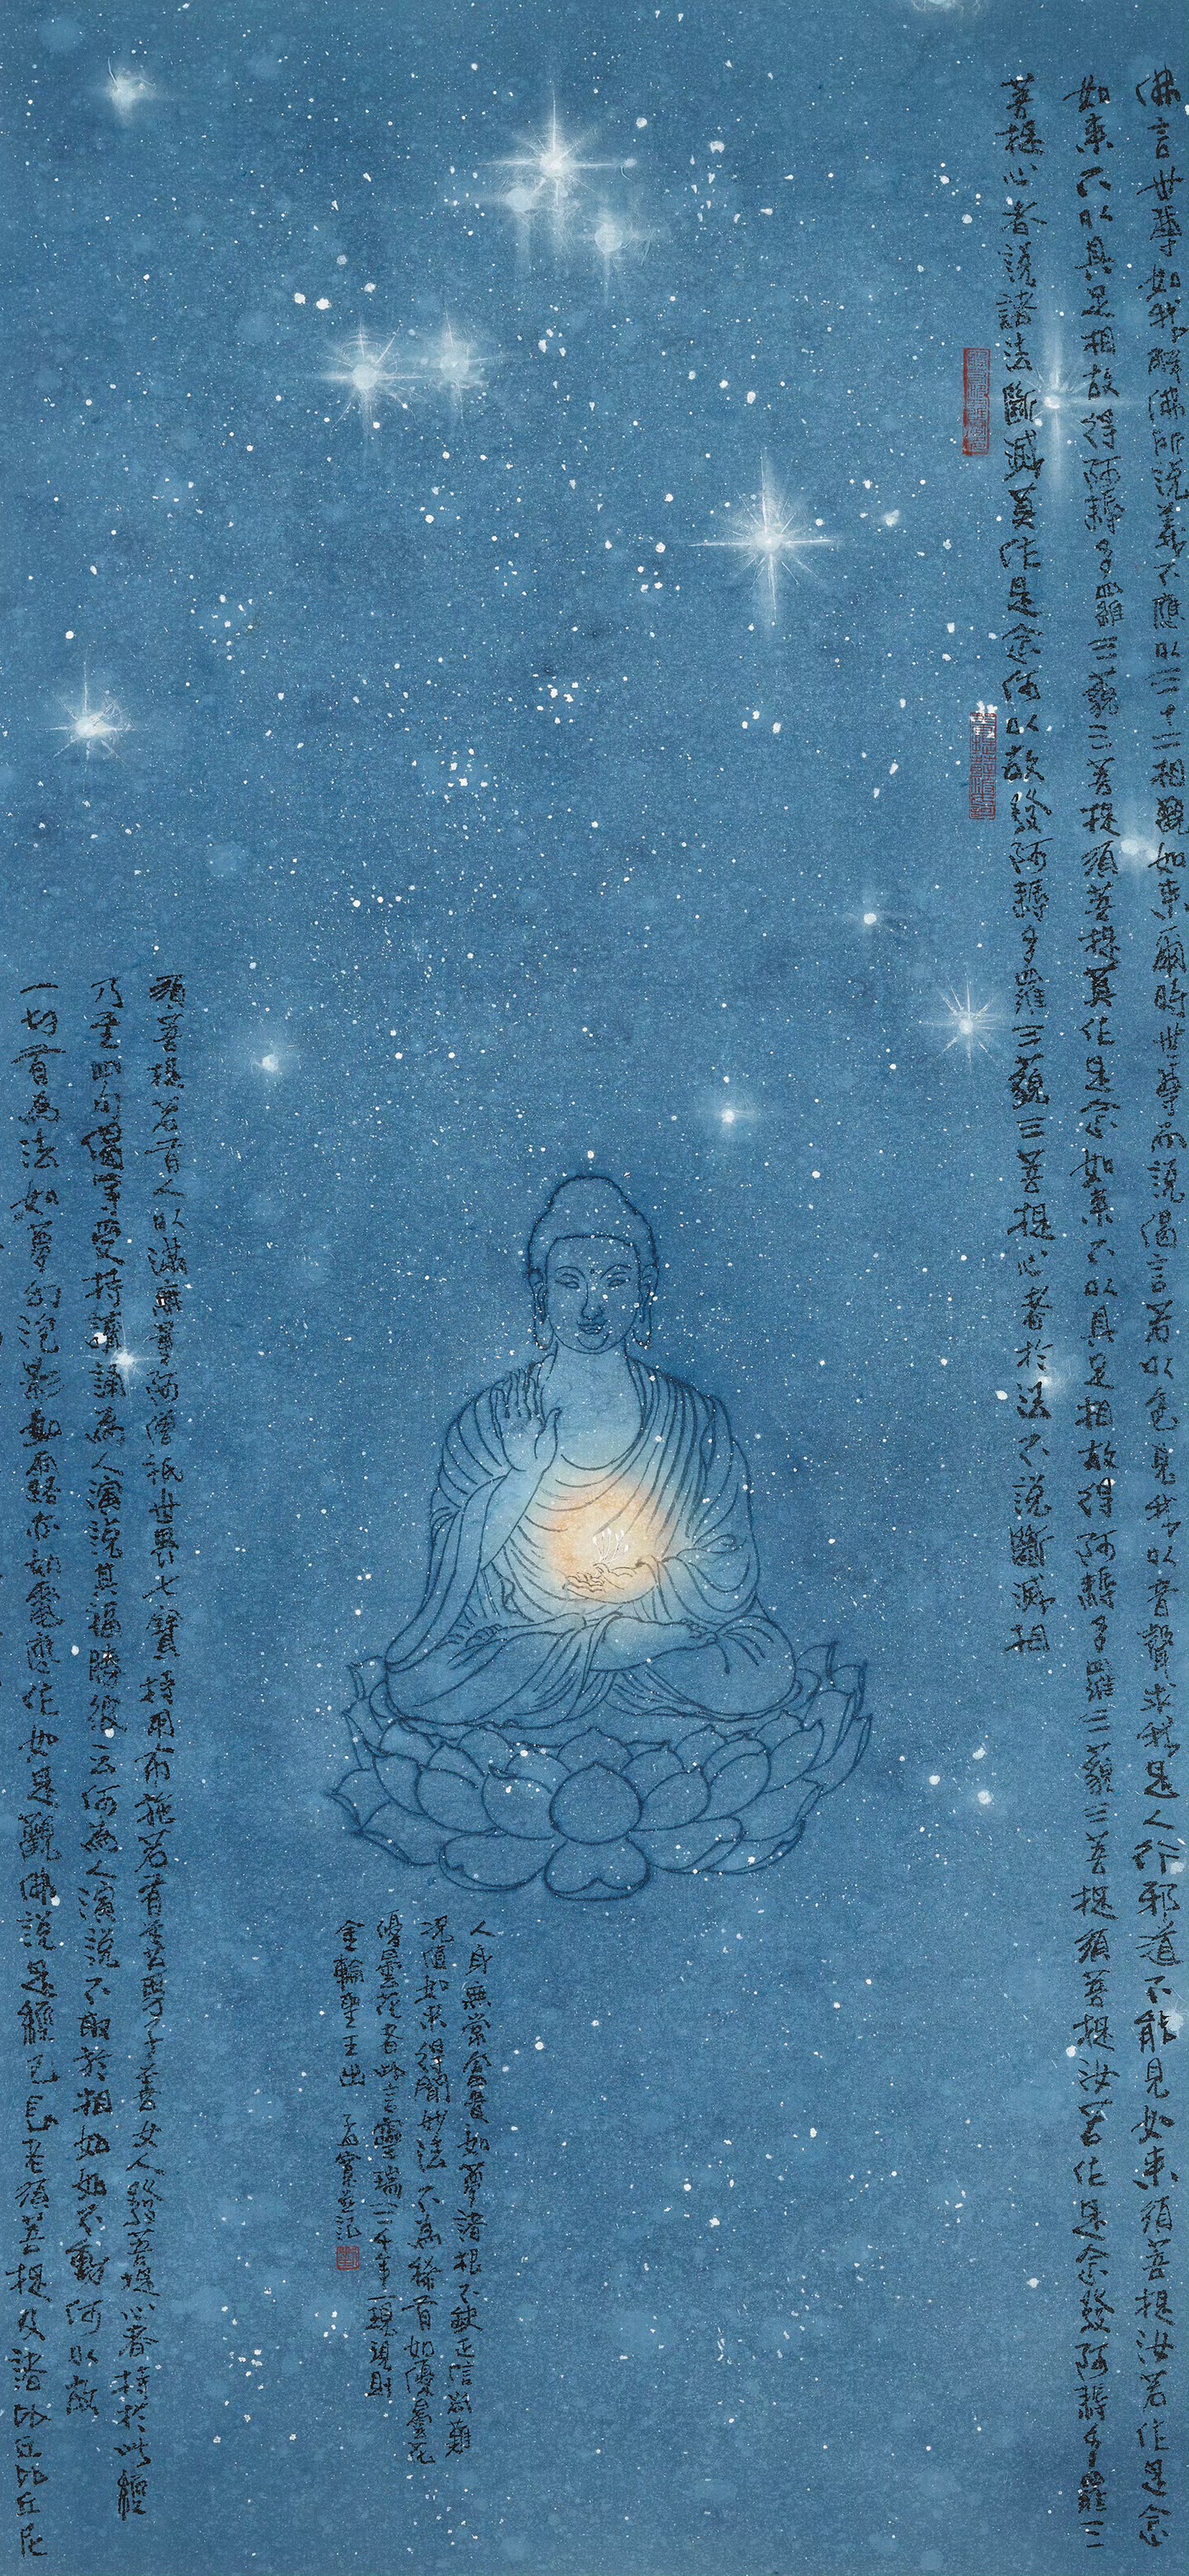 佛言世尊如我解佛所說義不應以三十二相觀如来爾時世尊而說偈言若以色見我以音聲求我是人行邪道不能見如来須菩提汝若作是念
如来不以具足相故得阿耨多羅三藐三菩提須菩提莫作是念如来不以具足相故得阿耨多羅三藐三菩提須菩提汝若作是念發阿耨多羅三
菩提心者說諸法斷滅莫作是念何以故發阿耨多羅三藐三菩提心者於法不說斷滅相
須菩提若有人以滿無量阿僧祇世界七寶持用布施若有善男子善女人發菩提心者持於此經
乃至四句偈等受持讀誦為人演說其福勝彼云何為人演說不取於相如如不動何以故
一切有為法如夢幻泡影如露亦如電應作如是觀佛說是經已長老須菩提及諸比丘比丘尼
人身無常富貴如夢諸根不缺正信尚難
況值如来得聞妙法不為稀有如優曇花
優曇花者此言靈瑞三千年一現現則
金輪聖王出